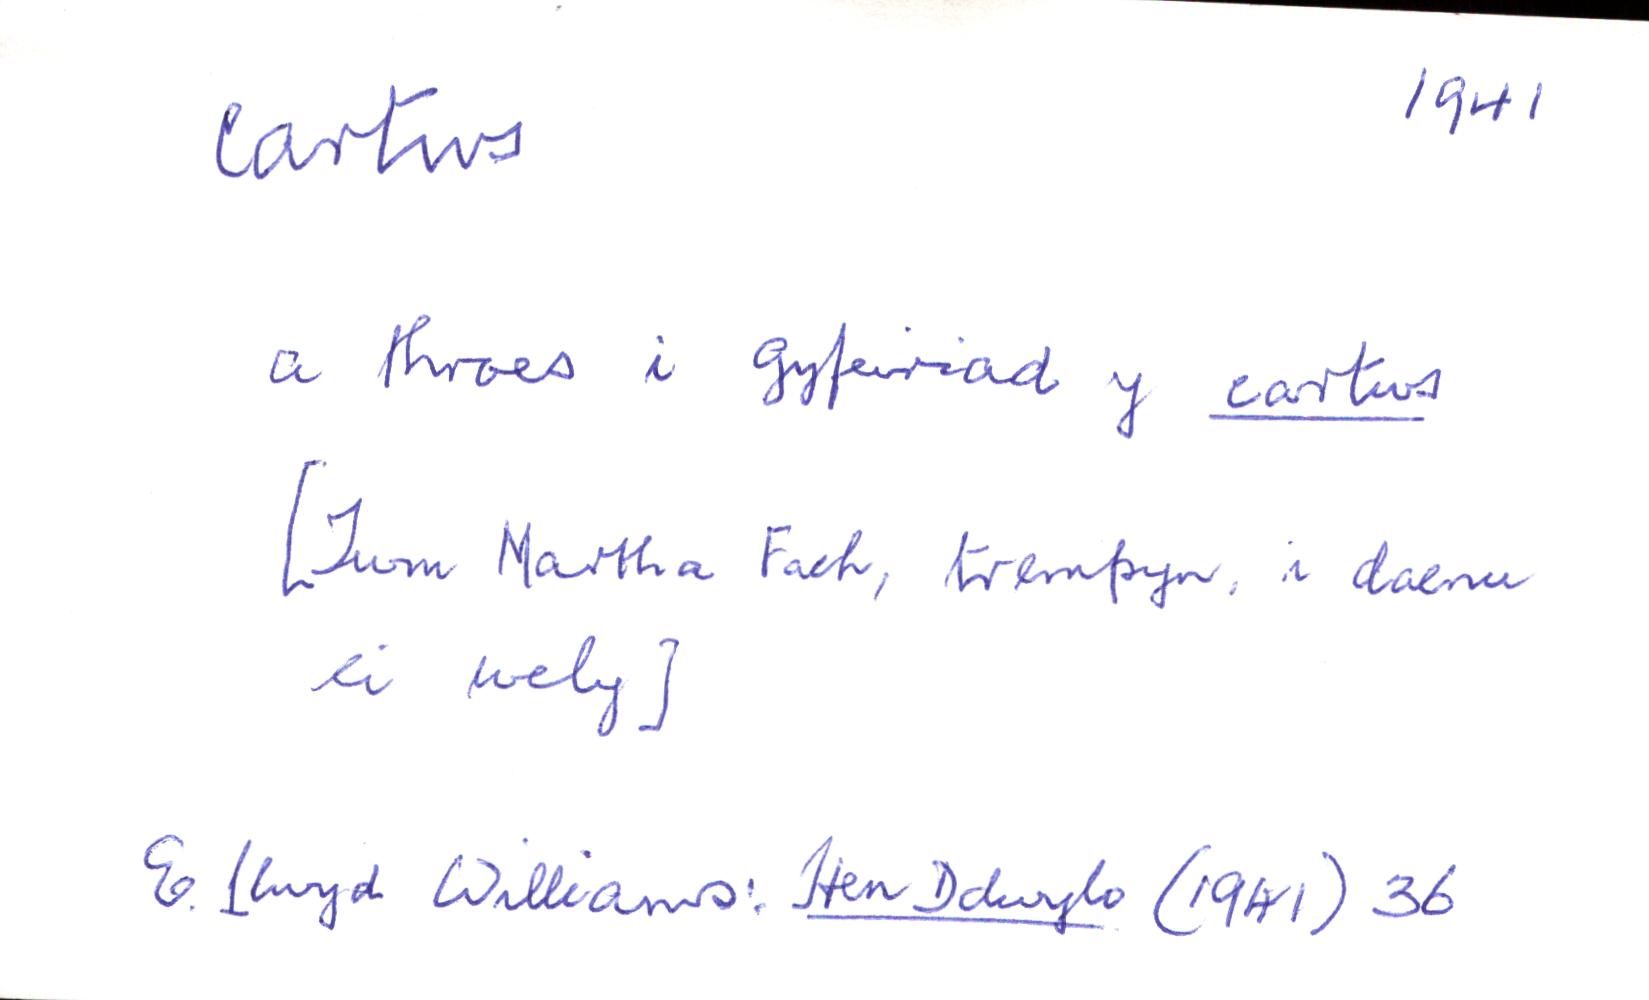 cartws 1941
a throes i gyfeiriad y cartws
[Twm Martha Fach, trempyn, i daenu
ei wely]
E. Llwyd Williams: Hen Ddwylo (1941) 36